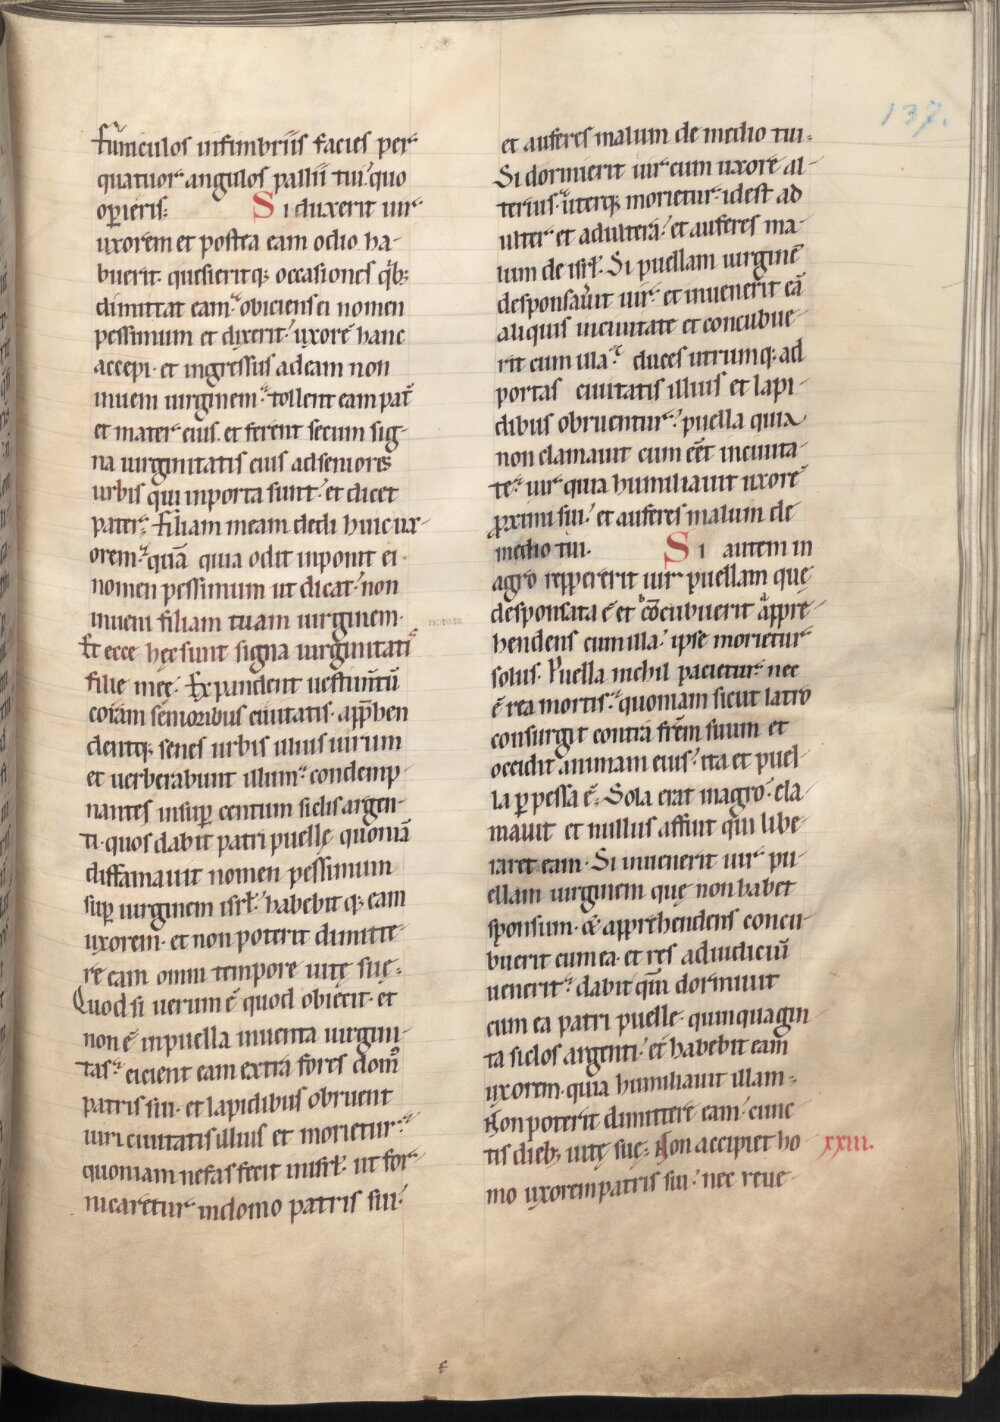 137.
Funiculos infimbriis facies per
quatuor angulos pallii tui. quo
opieris:
Si duxerit uir
uxorem et postea eam odio ha-
buerit. quesieritq; occasiones qb;
dimittat eam. obiciens ei nomen
pessimum et dixerit. uxorē hanc
accepi. et ingressus adeam non
inueni uirginem. tollent eam pat̄
et mater eius. et ferent secum sig-
na uirginitatis eius adseniores
urbis qui inporta sunt. et dicet
pater. Filiam meam dedi huic ux-
orem. quā quia odit inponit ei
nomen pessimum ut dicat. non
inueni filiam tuam uirginem.
Et ecce hęc sunt signa uirginitati
filie meę. Expandent uestim̄tū
coram senioribus ciuitatis. app̄hen
dentq; senes urbis illius uirum
et uerberabunt illum. condemp-
nantes insup centum siclis argen-
ti. quos dabit patri puellę quoniā
diffamauit nomen pessimum
sup uirginem isrl̄. habebit q; eam
uxorem. et non poterit dimitte-
re eam omni tempore uitę suę.
Quod si uerum ē quod obiecit. et
non ē inpuella inuenta uirgini-
tas. eicient eam extra fores dom̄
patris sui. et lapidibus obruent
uiri ciuitatis illius et morietur.
quoniam nefas fecit inisrl̄. ut for-
nicaretur indomo patris sui.
et auferes malum de medio tui.
Si dormierit uir cum uxore al-
terius. uterq; morietur. idest ad
ulter et adultera. et auferes ma-
lum de isrl̄. Si puellam uirginē
desponsauit uir. et inuenerit eā
aliquis inciuitate et concubue-
rit cum illa. duces utrumq; ad
portas ciuitatis illius et lapi-
dibus obruentur. puella quia
non clamauit cum eēt inciuita-
te. uir quia humiliauit uxorē
proximi sui. et auferes malum de
medio tui. Si autem in
agro reppererit uir puellam quę
desponsata ē et cōcubuerit appre-
hendens cum illa. ipse morietur
solus. Puella nichil pacietur. nec
ē rea mortis. quoniam sicut latro
consurgit contra frēm suum et
occidit animam eius. ita et puel-
la ppessa ē. Sola erat inagro. cla-
mauit et nullus affuit qui libe-
raret eam. Si inuenerit uir pu-
ellam uirginem quę non habet
sponsum. & apprehendens concu-
buerit cum ea. et res adiudiciū
uenerit. dabit qm̄ dormiuit
cum ea patri puelle. quinquagin-
ta siclos argenti. et habebit eam
uxorem. quia humiliauit illam.
Non poterit dimittere eam. cunc-
tis dieb; uitę suę. Non accipiet ho xxiii.
mo uxorem patris sui. nec reue-